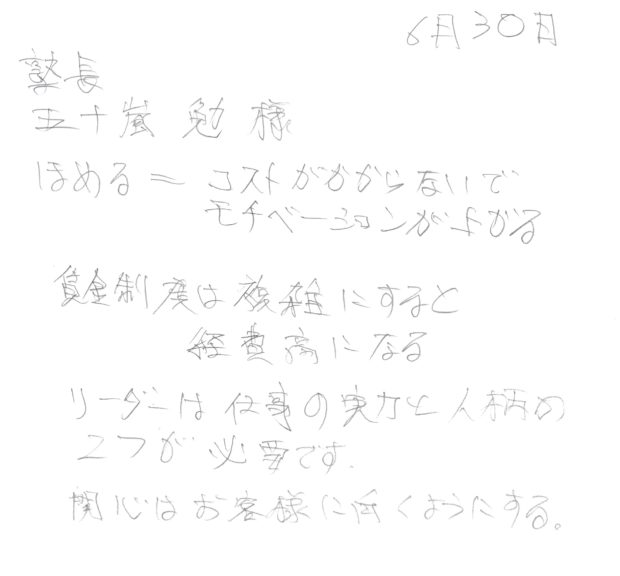 6月30日
塾長
五十嵐 勉 様
ほめる = コストがかからないで
モチベーションが上がる
賃金制度は複雑にすると
経費高になる
リーダーは仕事の実力と人柄の
2つが必要です.
関心はお客様に向くようにする。